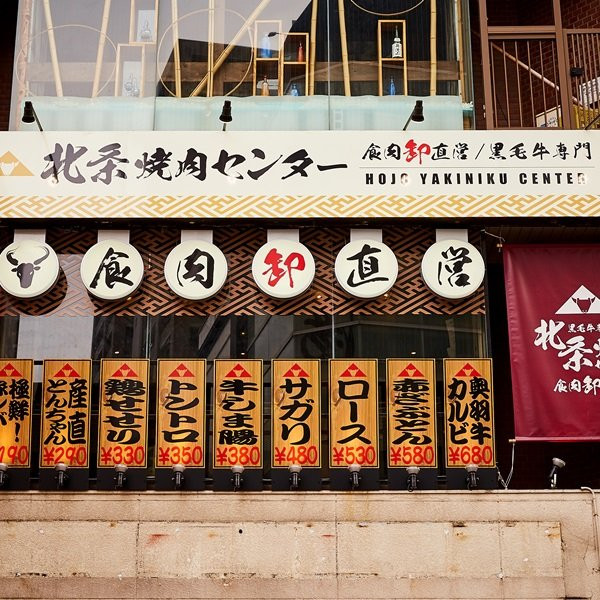 北条焼肉センター
食肉卸直営/黒毛牛専門
HOJO YAKINIKU CENTER
食肉卸直営
極鮮!
豚レバ
¥190
産直
とんちゃん
¥290
鶏せせり
¥330
トントロ
¥350
牛しま腸
¥380
サガリ
¥480
ロース
¥530
¥580
奥羽牛
カルビ
¥680
黒毛牛専
北条焼
食肉卸